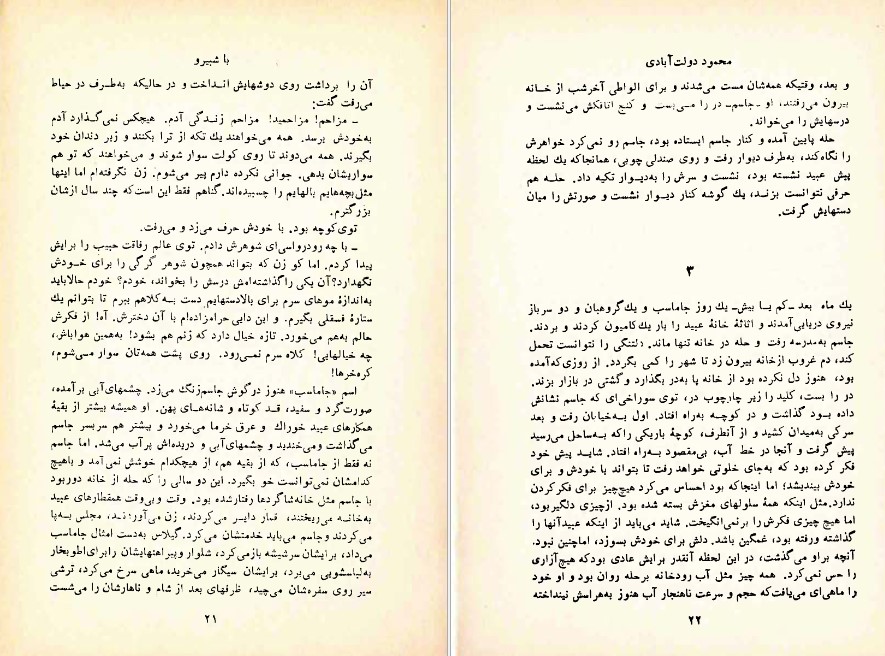 با شبیرو
آن را برداشت روی دوشهایش انداخت و در حالیکه به‌طرف در حیاط
می‌رفت گفت:
ـ مزاحم! مزاحمید! مزاحم زندگی آدم. هیچکس نمی‌گذارد آدم
به‌خودش برسد. همه می‌خواهند یك تکه از ترا بکنند و زیر دندان خود
بگیرند. همه می‌دوند تا روی کولت سوار شوند و می‌خواهند که تو هم
سواریشان بدهی. جوانی نکرده دارم پیر می‌شوم. زن نگرفته‌ام اما اینها
مثل‌بچه‌هایم بالهایم را چسبیده‌اند. گناهم فقط این است‌که چند سال ازشان
بزرگترم.
توی‌کوچه بود. با خودش حرف می‌زد و می‌رفت.
ـ با چه رودرواسی‌ای شوهرش دادم. توی عالم رفاقت حبیب را برایش
پیدا کردم. اما کو زن که بتواند همچون شوهر گرگی را برای خودش
نگهدارد؟ آن یکی راگذاشته‌امش درسش را بخواند، خودم؟ خودم حالاباید
به‌اندازهٔ موهای سرم برای بالادستهایم دست به‌کلاهم ببرم تا بتوانم یك
ستارهٔ فسقلی بگیرم. و این دایی حرامزاده‌ام با آن دخترش. آه! از فکرش
حالم به‌هم می‌خورد. تازه خیال دارد که زنم هم بشود! به‌همین هواباش،
چه خیالهایی! کلاه سرم نمی‌رود. روی پشت همه‌تان سوار می‌شوم،
کره‌خرها!
اسم «جاماسب» هنوز درگوش جاسم‌زنگ می‌زد. چشمهای‌آبی برآمده،
صورت‌گرد و سفید، قد کوتاه و شانه‌های پهن. او همیشه بیشتر از بقیهٔ
همکارهای عبید خوراك و عرق خرما می‌خورد و بیشتر هم سربسر جاسم
می‌گذاشت ومی‌خندید و چشمهای‌آبی و دریده‌اش پرآب می‌شد. اما جاسم
نه فقط از جاماسب، که از بقیه هم، از هیچکدام خوشش نمی‌آمد و باهیچ
کدامشان نمی‌توانست خو بگیرد. این دو سالی را که حله از خانه دوربود
با جاسم مثل خانه‌شاگردها رفتارشده بود. وقت و بی‌وقت همقطارهای عبید
به‌خانه می‌ریختند، قمار دایر می‌کردند، زن می‌آوردند، مجلس به‌پا
می‌کردند و جاسم می‌باید خدمتشان می‌کرد. گیلاس به‌دست امثال جاماسب
می‌داد، برایشان سرشیشه بازمی‌کرد، شلوار و پیراهنهایشان را برای‌اطوبخار
به‌لباسشویی می‌برد، برایشان سیگار می‌خرید، ماهی سرخ می‌کرد، ترشی
سیر روی سفره‌شان می‌چید، ظرفهای بعد از شام و ناهارشان را می‌شست
۲۱
محمود دولت‌آبادی
و بعد، وقتیکه همه‌شان مست می‌شدند و برای الواطی آخرشب از خانه
بیرون می‌رفتند، او ـ جاسم‌ـ در را می‌بست و کنج اتاقکش می‌نشست و
درسهایش را می‌خواند.
حله پایین آمده و کنار جاسم ایستاده بود، جاسم رو نمی‌کرد خواهرش
را نگاه‌کند، به‌طرف دیوار رفت و روی صندلی چوبی، همانجاکه یك لحظه
پیش عبید نشسته بود، نشست و سرش را به‌دیوار تکیه داد. حله هم
حرفی نتوانست بزند، یك گوشه کنار دیوار نشست و صورتش را میان
دستهایش گرفت.
۳
یك ماه بعد ـ کم یا بیش‌ـ یك روز جاماسب و یك‌گروهبان و دو سرباز
نیروی دریایی‌آمدند و اثاثهٔ خانهٔ عبید را بار یك‌کامیون کردند و بردند.
جاسم به‌مدرسه رفت و حله در خانه تنها ماند. دلتنگی را نتوانست تحمل
کند، دم غروب ازخانه بیرون زد تا شهر را کمی بگردد. از روزی‌که‌آمده
بود، هنوز دل نکرده بود از خانه پا به‌در بگذارد وگشتی در بازار بزند.
در را بست، کلید را زیر چارچوب در، توی سوراخی‌ای که جاسم نشانش
داده بود گذاشت و در کوچه به‌راه افتاد. اول به‌خیابان رفت و بعد
سرکی به‌میدان کشید و از آنطرف، کوچهٔ باریکی راکه به‌ساحل می‌رسید
پیش گرفت و آنجا در خط آب، بی‌مقصود به‌راه افتاد. شاید پیش خود
فکر کرده بود که به‌جای خلوتی خواهد رفت تا بتواند با خودش و برای
خودش بیندیشد؛ اما اینجاکه بود احساس می‌کرد هیچ‌چیز برای فکرکردن
ندارد. مثل اینکه همهٔ سلولهای مغزش بسته شده بود. ازچیزی دلگیربود،
اما هیچ چیزی فکرش را برنمی‌انگیخت. شاید می‌باید از اینکه عبیدآنها را
گذاشته ورفته بود، غمگین باشد. دلش برای خودش بسوزد، اماچنین نبود.
آنچه براو می‌گذشت، در این لحظه آنقدر برایش عادی بودکه هیچ‌آزاری
را حس نمی‌کرد. همه چیز مثل آب رودخانه برحله روان بود و او خود
را ماهی‌ای می‌یافت‌که حجم و سرعت ناهنجار آب هنوز به‌هراسش نینداخته
۲۲